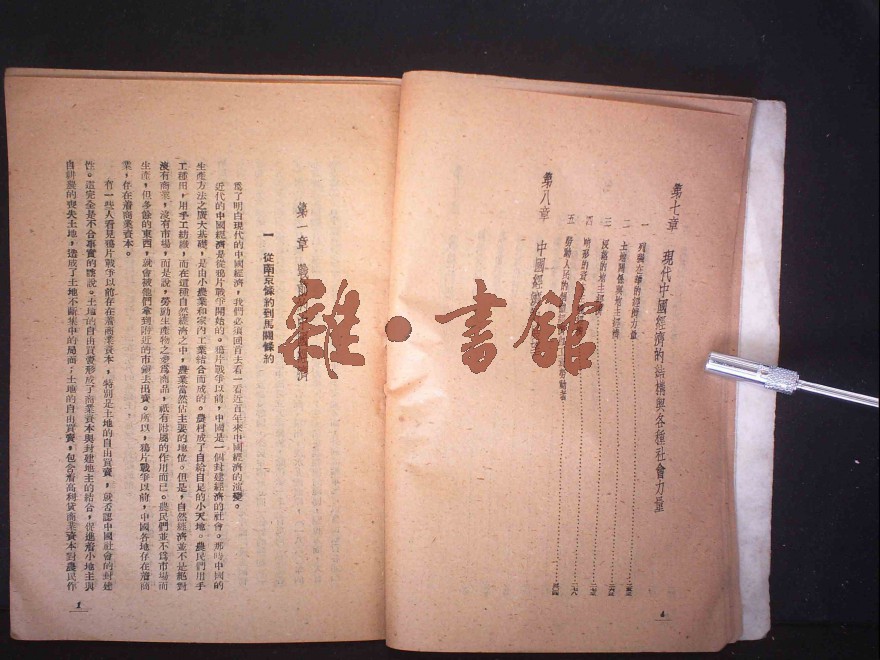 第七章　現代中國經濟的結構與各種社會力量
一　列強在華的經濟力量
二　土地關係與地主經濟
三
四
五　勞動人民的
第八章　中國經濟
4
第一章
一　從南京條約到馬關條約
爲了明白現代的中國經濟，我們必須回首去看一看近百年來中國經濟的演變。
近代的中國經濟是從鴉片戰爭開始的。鴉片戰爭以前，中國是一個封建經濟的社會。那時中國的
生產方法之廣大基礎，是由小農業和家內工業結合而成的。農村成了自給自足的小天地。農民們用手
工種田，用手工紡織，而在這種自然經濟之中，農業當然佔主要的地位。但是，自然經濟並不是絕對
沒有商業，沒有市場，而是說，勞動生產物之變爲商品，祇有附屬的作用而已。農民們並不爲市場而
生產，但多餘的東西，就會被他們拿到附近的市鎮去出賣。所以，鴉片戰爭以前，中國各地存在着商
業，存在着商業資本。
有一些人看見鴉片戰爭以前存在着商業資本，特別是土地的自由買賣，就否認中國社會的封建
性。這完全是不合事實的瞎說。土地的自由買賣形成了商業資本與封建地主的結合，促進着小地主與
自耕農的喪失土地，造成了土地不斷集中的局面；土地的自由買賣，包含着高利貸商業資本對農民作
1
雜·書館